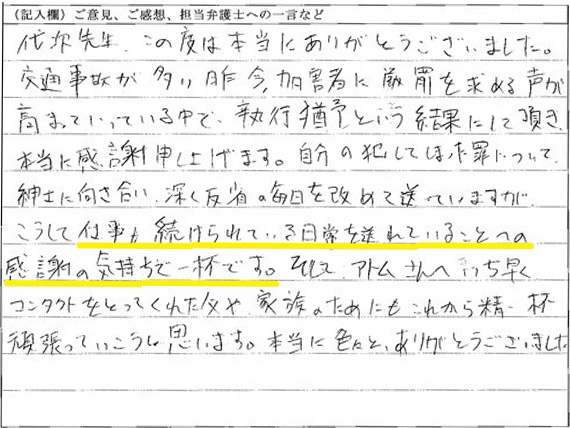 (記入欄)ご意見、ご感想、担当弁護士への一言など
代次先生、この度は本当にありがとうございました。
交通事故が多い昨今、加害者に厳罰を求める声が
高まっていっている中で、執行猶予という結果にして頂き、
本当に感謝申し上げます。自分の犯してしまった罪について、
紳士に向き合い、深く反省の毎日を改めて送っていますが、
こうして仕事が続けられている日常を送れていることへの
感謝の気持ちで一杯です。そして、アトムさんへいち早く
コンタクトをとってくれた父や、家族のためにもこれから精一杯
頑張っていこうと思います。本当に色々と、ありがとうございました